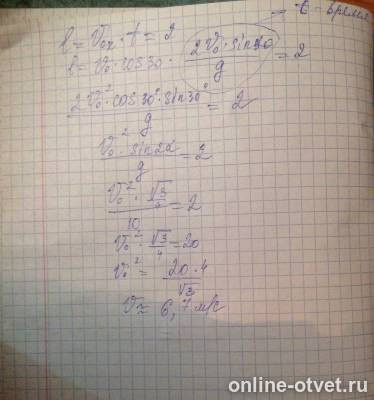 → t - время
l = V₀ₓ · t = 2
l = V₀ · cos30 · 2V₀ · sin30 / g = 2
2V₀² · cos30° · sin30° / g = 2
V₀² · sin2α / g = 2
V₀² · √3/4 / 10 = 2
V₀² · √3/4 = 20
V₀² = 20 · 4 / √3
V ≈ 6,7 м/с
online-otvet.ru